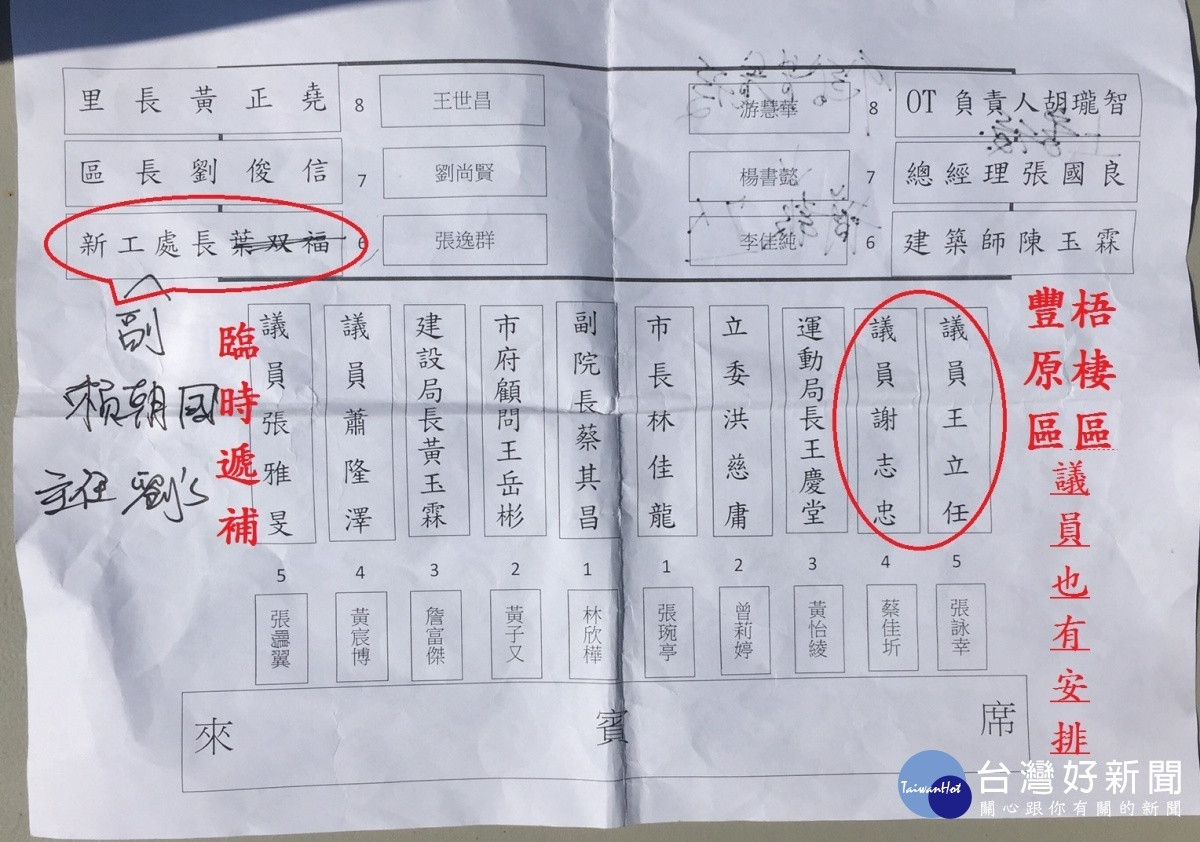 里長黃正堯 8 王世昌 游慧華 8 OT負責人胡瓏智
區長劉俊信 7 劉尚賢 楊書懿 7 總經理張國良
新工處長葉双福 6 張逸群 李佳純 6 建築師陳玉霖
副
賴朝國
主任 劉
臨時遞補
議員張雅旻
議員蕭隆澤
建設局長黃玉霖
市府顧問王岳彬
副院長蔡其昌
市長林佳龍
立委洪慈庸
運動局長王慶堂
議員謝志忠
議員王立任
梧棲區
豐原區
議員也有安排
5 4 3 2 1 1 2 3 4 5
張翼
黃宸博
詹富傑
黃子又
林欣樺
張琬亭
曾莉婷
黃怡綾
蔡佳圻
張詠幸
來賓席
TaiwanHot 台灣好新聞
關心跟你有關的新聞